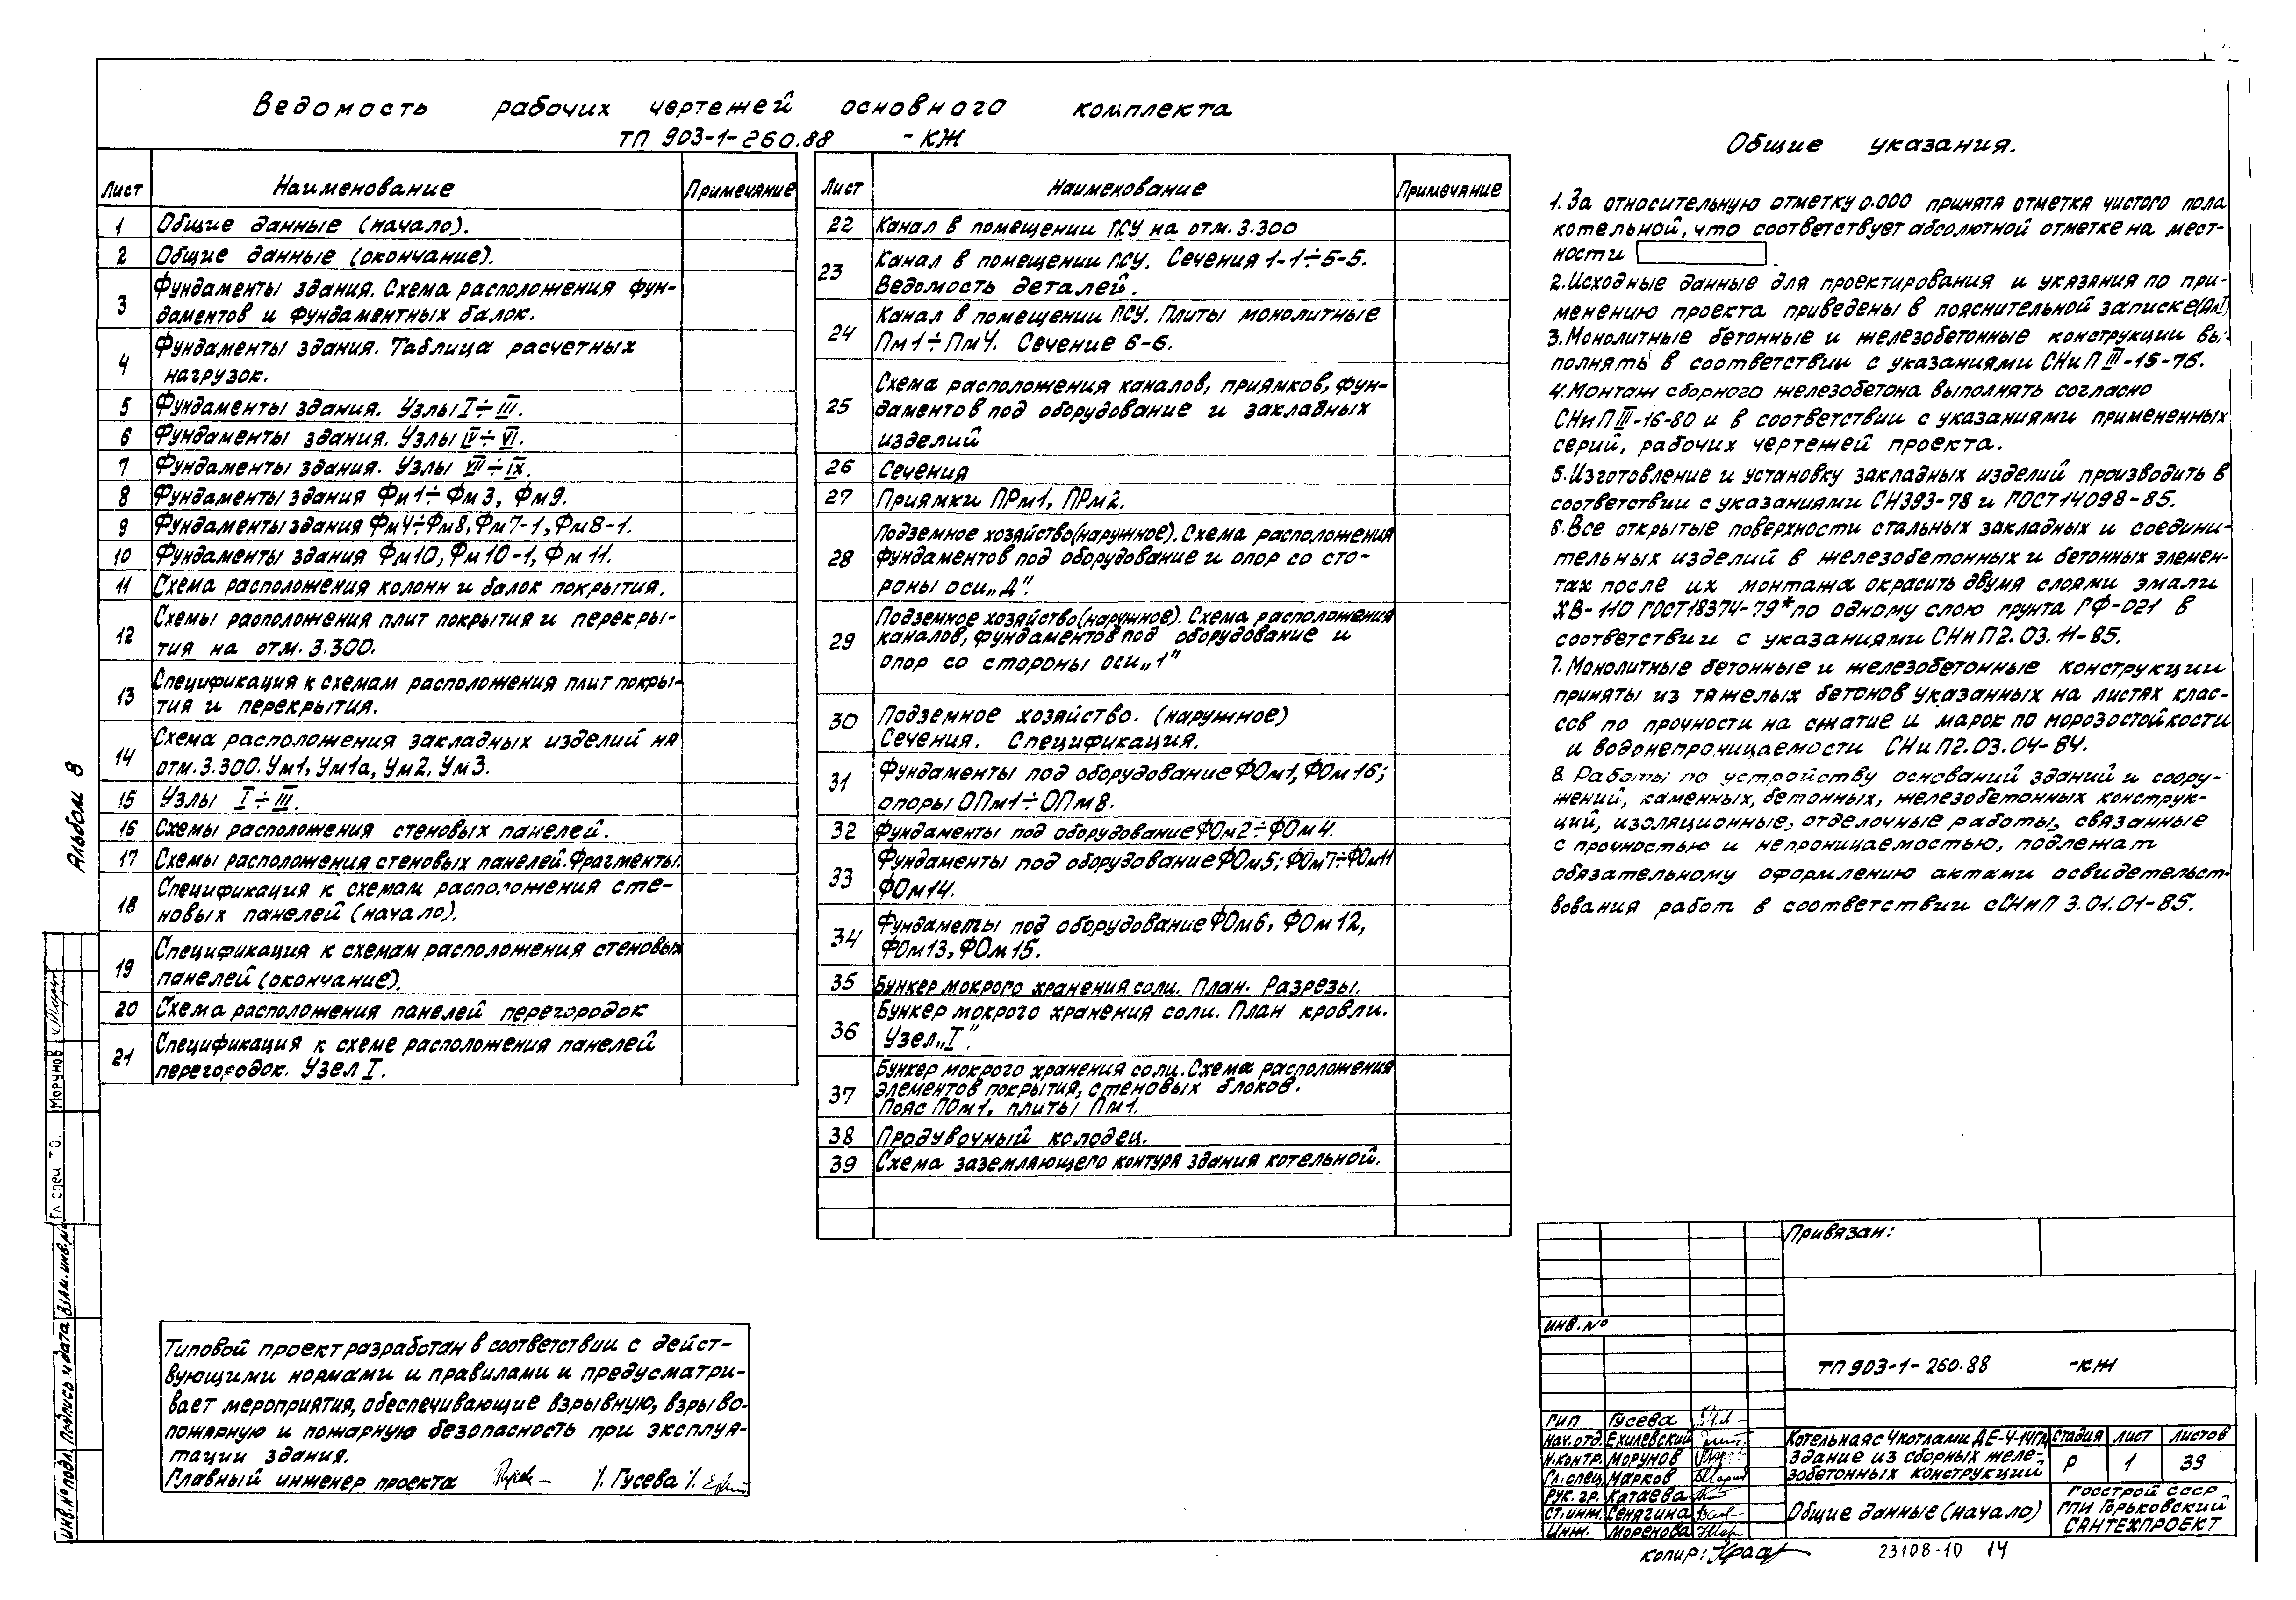 Ведомость рабочих чертежей основного комплекта
ТП 903-1-260.88 -КЖ
Лист Наименование Примечание
1 Общие данные (начало).
2 Общие данные (окончание).
3 Фундаменты здания. Схема расположения фун-
даментов и фундаментных балок.
4 Фундаменты здания. Таблица расчетных
нагрузок.
5 Фундаменты здания. Узлы I÷III.
6 Фундаменты здания. Узлы IV÷VI.
7 Фундаменты здания. Узлы VII÷IX.
8 Фундаменты здания Фм1÷Фм3, Фм9.
9 Фундаменты здания Фм4÷Фм8, Фм7-1, Фм8-1.
10 Фундаменты здания Фм10, Фм10-1, Фм11.
11 Схема расположения колонн и балок покрытия.
12 Схемы расположения плит покрытия и перекры-
тия на отм. 3.300.
13 Спецификация к схемам расположения плит покры-
тия и перекрытия.
14 Схема расположения закладных изделий на
отм. 3.300. Ум1, Ум1а, Ум2, Ум3.
15 Узлы I÷III.
16 Схемы расположения стеновых панелей.
17 Схемы расположения стеновых панелей. Фрагменты.
18 Спецификация к схемам расположения сте-
новых панелей (начало).
19 Спецификация к схемам расположения стеновых
панелей (окончание).
20 Схема расположения панелей перегородок
21 Спецификация к схеме расположения панелей
перегородок. Узел I.
Лист Наименование Примечание
22 Канал в помещении ПСУ на отм. 3.300
23 Канал в помещении ПСУ. Сечения 1-1÷5-5.
Ведомость деталей.
24 Канал в помещении ПСУ. Плиты монолитные
Пм1÷Пм4. Сечение 6-6.
25 Схема расположения каналов, приямков, фун-
даментов под оборудование и закладных
изделий
26 Сечения
27 Приямки ПРм1, ПРм2.
28 Подземное хозяйство (наружное). Схема расположения
фундаментов под оборудование и опор со сто-
роны оси „Д".
29 Подземное хозяйство (наружное). Схема расположения
каналов, фундаментов под оборудование и
опор со стороны оси „1"
30 Подземное хозяйство. (наружное)
Сечения. Спецификация.
31 Фундаменты под оборудование ФОм1, ФОм16;
опоры ОПм1÷ОПм8.
32 Фундаменты под оборудование ФОм2÷ФОм4.
33 Фундаменты под оборудование ФОм5; ФОм7÷ФОм11
ФОм14.
34 Фундаметы под оборудование ФОм6, ФОм12,
ФОм13, ФОм15.
35 Бункер мокрого хранения соли. План. Разрезы.
36 Бункер мокрого хранения соли. План кровли.
Узел „I".
37 Бункер мокрого хранения соли. Схема расположения
элементов покрытия, стеновых блоков.
Пояс ПОм1, плиты Пм1.
38 Продувочный колодец.
39 Схема заземляющего контура здания котельной.
Общие указания.
1. За относительную отметку 0.000 принята отметка чистого пола
котельной, что соответствует абсолютной отметке на мест-
ности .
2. Исходные данные для проектирования и указания по при-
менению проекта приведены в пояснительной записке (Ал.I)
3. Монолитные бетонные и железобетонные конструкции вы-
полнять в соответствии с указаниями СНиП III-15-76.
4. Монтаж сборного железобетона выполнять согласно
СНиП III-16-80 и в соответствии с указаниями примененных
серий, рабочих чертежей проекта.
5. Изготовление и установку закладных изделий производить в
соответствии с указаниями СН393-78 и ГОСТ 14098-85.
6. Все открытые поверхности стальных закладных и соедини-
тельных изделий в железобетонных и бетонных элемен-
тах после их монтажа окрасить двумя слоями эмали
ХВ-110 ГОСТ 18374-79* по одному слою грунта ГФ-021 в
соответствии с указаниями СНиП 2.03.11-85.
7. Монолитные бетонные и железобетонные конструкции
приняты из тяжелых бетонов указанных на листах клас-
сов по прочности на сжатие и марок по морозостойкости
и водонепроницаемости СНиП 2.03.04-84.
8. Работы по устройству оснований зданий и соору-
жений, каменных, бетонных, железобетонных конструк-
ций, изоляционные, отделочные работы, связанные
с прочностью и непроницаемостью, подлежат
обязательному оформлению актами освидетельст-
вования работ в соответствии с СНиП 3.01.01-85.
Альбом 8
Гл. спец. т.о. Морунов
Инв.№подл. Подпись и дата Взам.инв.№
Типовой проект разработан в соответствии с дейст-
вующими нормами и правилами и предусматри-
вает мероприятия, обеспечивающие взрывную, взрыво-
пожарную и пожарную безопасность при эксплуа-
тации здания.
Главный инженер проекта /. Гусева /.
Привязан:
Инв.№
ТП 903-1-260.88 -КЖ
ГИП Гусева
Нач.отд. Ехилевский
Н.контр. Морунов
Гл.спец. Марков
Рук.гр. Катаева
Ст.инж. Сенягина
Инж. Моренова
Котельная с 4 котлами ДЕ-4-14ГМ
Здание из сборных желе-
зобетонных конструкций
Стадия Лист Листов
Р 1 39
Общие данные (начало)
Госстрой СССР
ГПИ Горьковский
САНТЕХПРОЕКТ
Копир:
23108-10 14